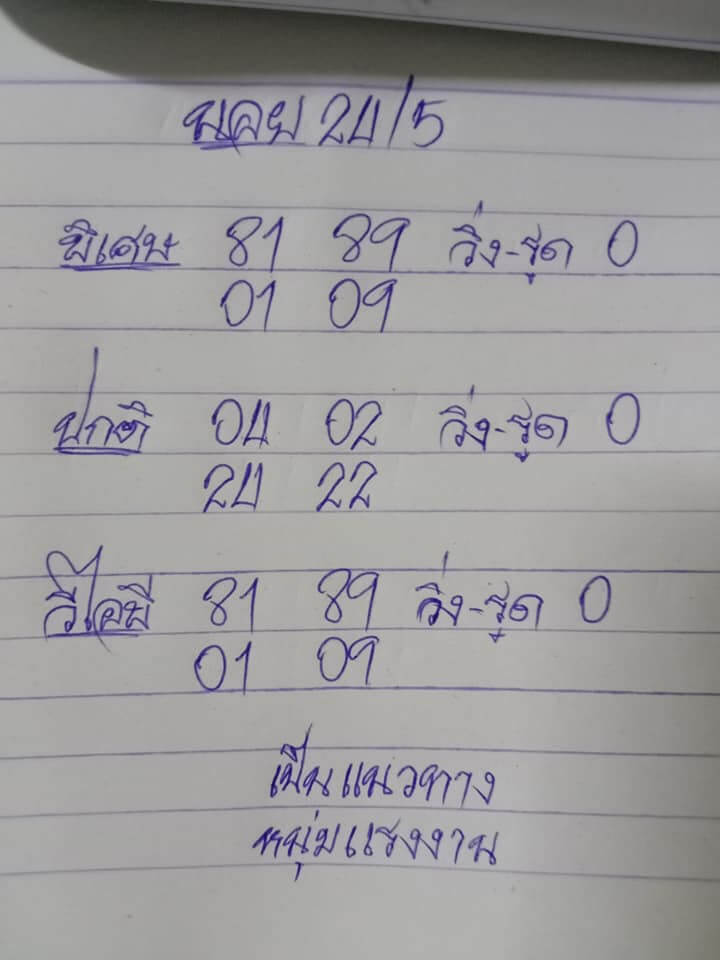 นอย 24/5
พิเศษ 81 89 วิ่ง-รูด 0
01 09
ปกติ 04 02 วิ่ง-รูด 0
24 22
วีไอพี 81 89 วิ่ง-รูด 0
01 09
เป็นแนวทาง
หนุ่มแรงงาน